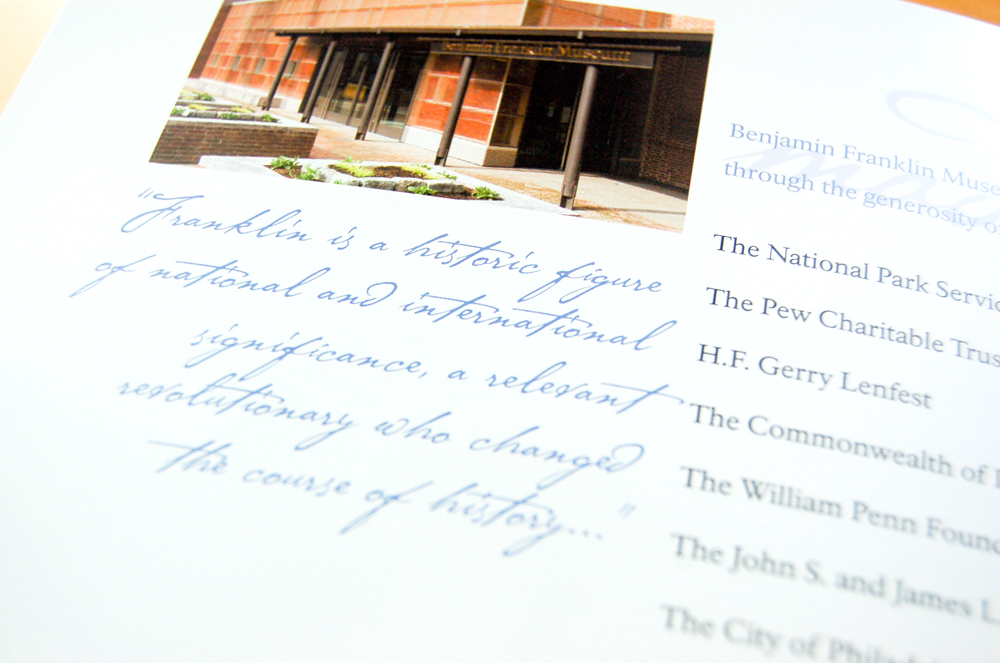 Benjamin Franklin Museum
"Franklin is a historic figure
of national and international
significance, a relevant
revolutionary who changed
the course of history..."
Benjamin Franklin Muse
through the generosity o
The National Park Servic
The Pew Charitable Trus
H.F. Gerry Lenfest
The Commonwealth of
The William Penn Found
The John S. and James L.
The City of Philad